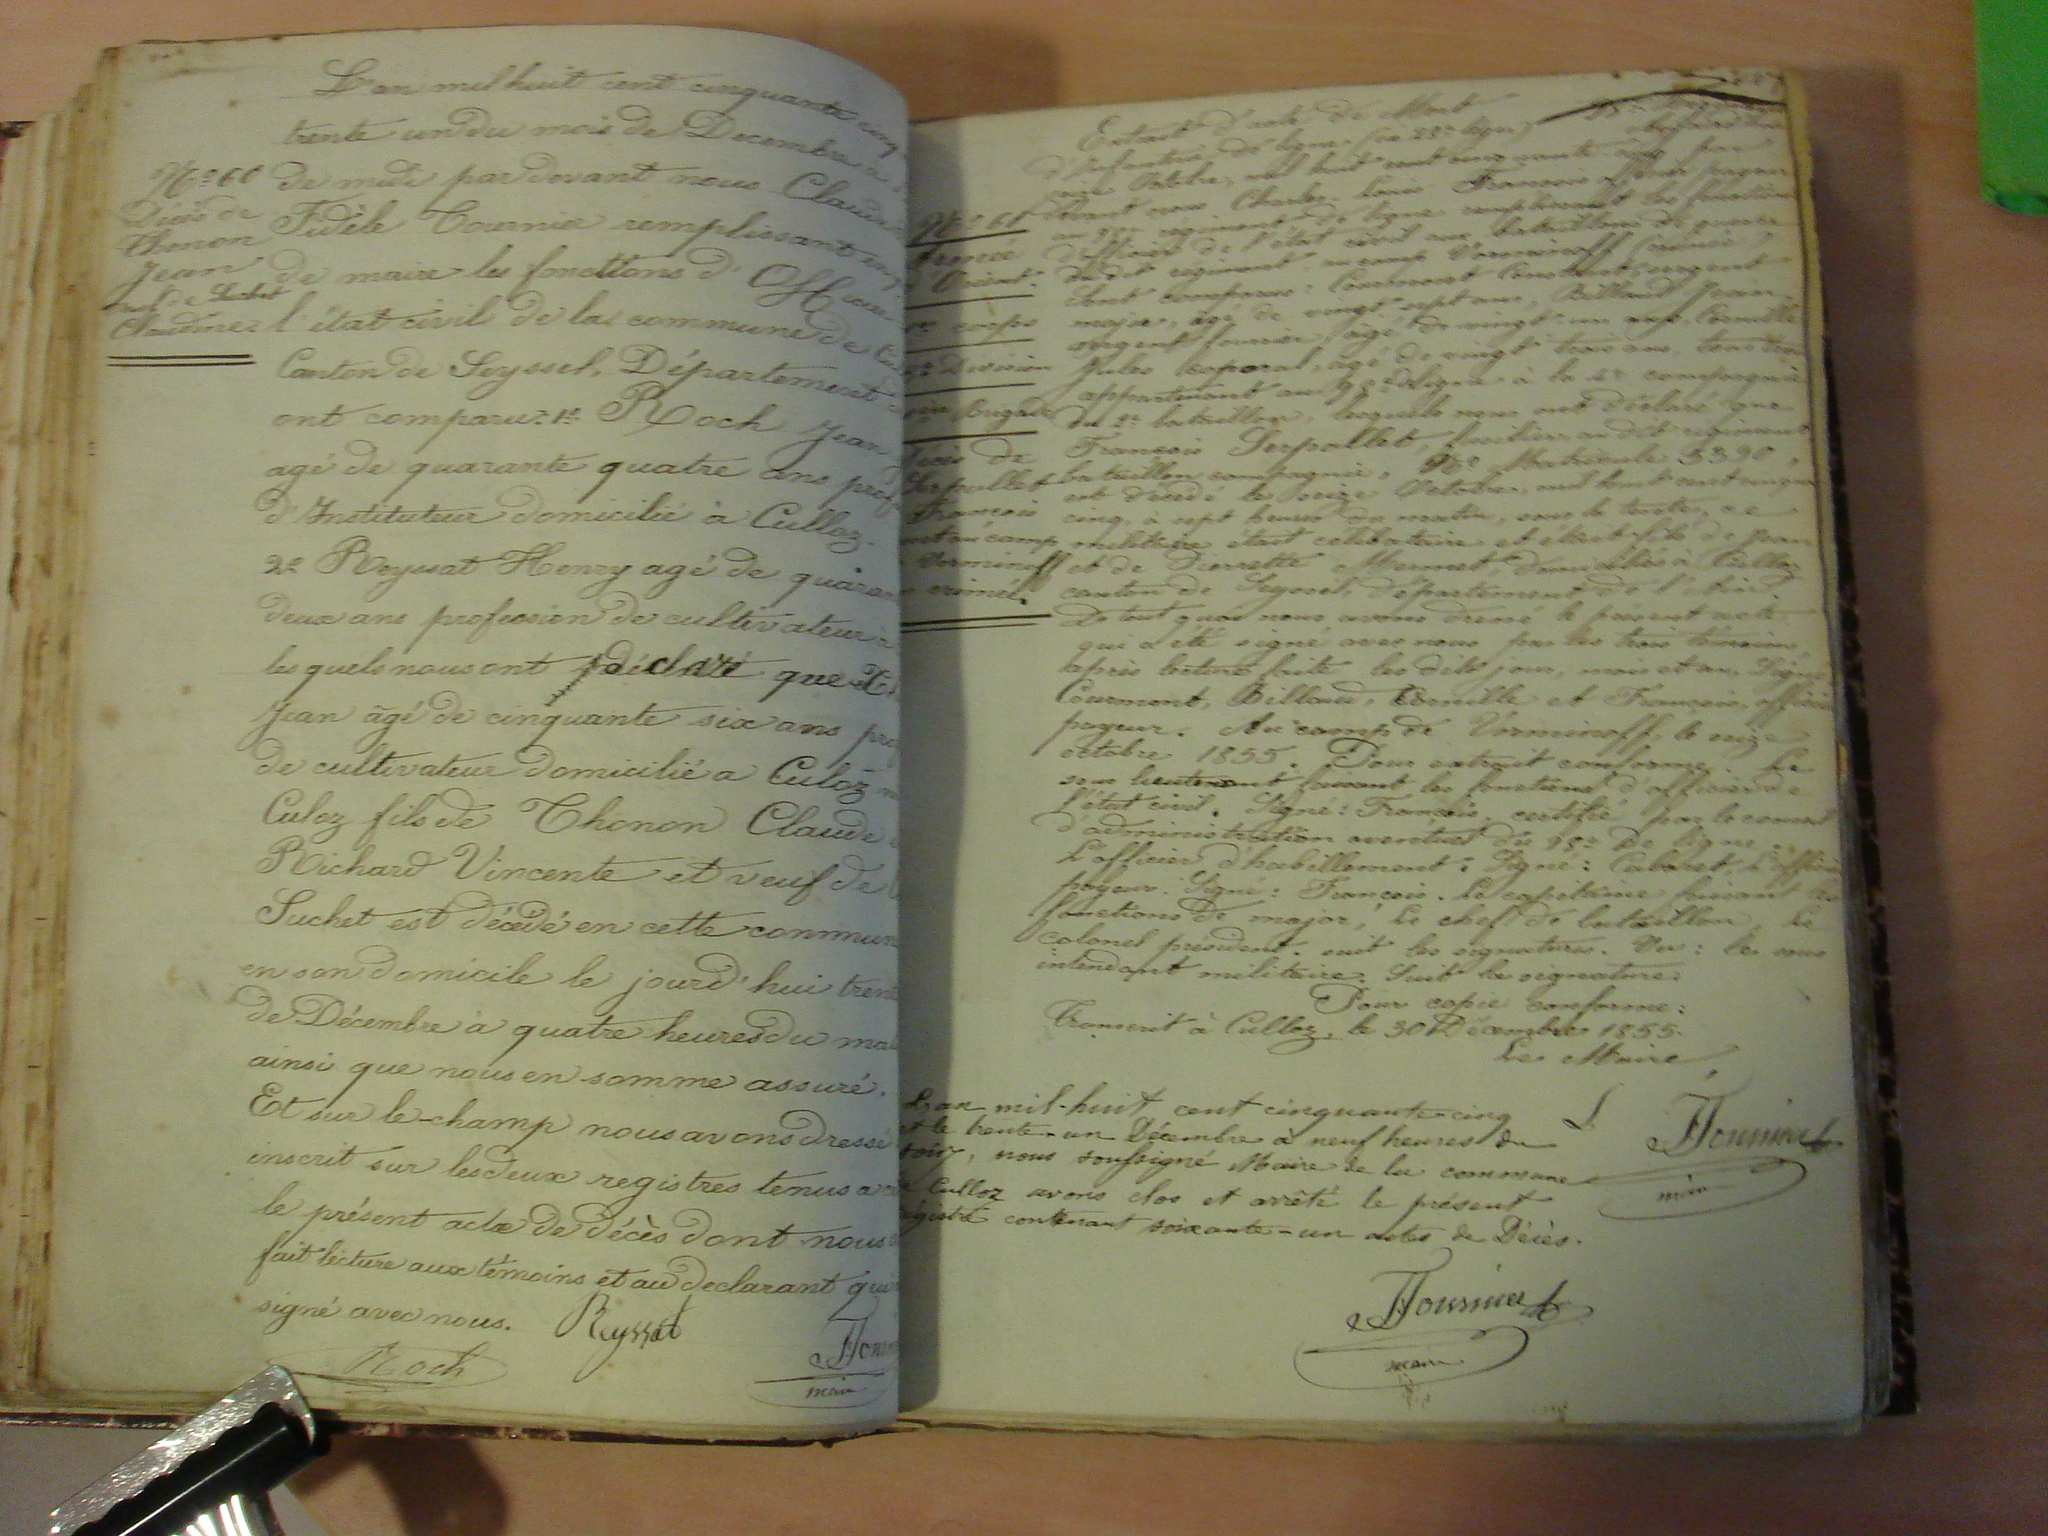 L'an mil huit cent cinquante cinq
trente un du mois de Decembre
de midi par devant nous Claude
Fidèle Tournier remplissant
de maire les fonctions d'Officier
l'état civil de la commune de
Canton de Seyssel, Département
ont comparu: 1º Roch Jean
agé de quarante quatre ans prof
d'Instituteur domicilié à Culloz.
2º Reyssat Henry agé de quaran
deux ans profession de cultivateur à
les quels nous ont déclaré que
Jean âgé de cinquante six ans pro
de cultivateur domicilié a Culoz
Culoz fils de Thonon Claude
Richard Vincente et veuf de
Suchet est décédé en cette commun
en son domicile le jourd'hui trent
de Décembre à quatre heures du ma
ainsi que nous en somme assuré.
Et sur le-champ nous avons dressé
inscrit sur les deux registres tenus a
le présent acte de décès dont nous
fait lecture aux témoins et au declarant qui
signé avec nous. Reyssat
Roch
maire
Nº 60
Décès de
Thonon
Jean
veuf de Suchet
Claudine
Extrait d'acte de Mort
d'Infanterie de ligne
Octobre, mil huit cent cinquante cinq par
devant nous Charles Louis François officier payeur
au régiment de ligne remplissant les fonctions
d'officier de l'état civil aux bataillons de guerre
du dit régiment au camp Vorminoff Crimée
Sont comparus: Courmont Constant sergent
major, âgé de vingt sept ans, Billaud
sergent fourrier, âgé de vingt un ans, Cornille
Jules caporal, agé de vingt trois ans, tous trois
appartenant au 98e de ligne à la 4e compagnie
du 2e bataillon, lesquels nous ont déclaré que
François Serpollet, fusilier au dit régiment
bataillon compagnie, Nº Matricule 5390,
est décédé le seize Octobre, mil huit cent cinquante
cinq, à sept heures du matin, sous la tente, ce
militaire était célibataire et était fils de Jean
et de Pierrette Mermet, domiciliés à Culloz
canton de Seyssel, département de l'Ain.
De tout quoi nous avons dressé le présent acte
qui a été signé avec nous par les trois témoins
après lecture faite les dits jour, mois et an. Signé
Courmont, Billaud, Cornille et François, officier
payeur. Au camp de Vorminoff, le seize
octobre 1855. Pour extrait conforme. Le
sous lieutenant faisant les fonctions d'officier de
l'état civil. Signé: François. certifié par le conseil
d'administration eventuel du 98e de ligne.
L'officier d'habillement: Signé: Cabaret, L'officier
payeur. Signé: François. Le capitaine faisant les
fonctions de major, Le chef de bataillon, Le
colonel président. suit les signatures. Vu: le sous
intendant militaire. Suit la signature.
Pour copie conforme:
Transcrit à Culloz, le 30 Décembre 1855.
Le Maire,
Nº 61
Armée
d'Orient.
corps
Division
Brigade
Décès de
Serpollet
François
mort au camp
Vorminoff
crimée.
L'an mil-huit cent cinquante-cinq
et le trente-un Décembre à neuf heures du
soir, nous soussigné Maire de la commune
de Culloz avons clos et arrêté le présent
registre contenant soixante-un actes de Décès.
Tournier
maire
Tournier
maire